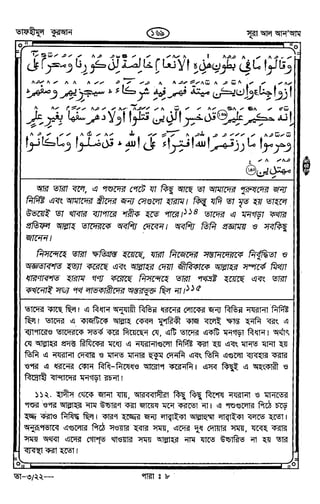 তাফহীমুল কুরআন
১৬৯
সূরা আল আন'আম
وَقَالُوا مَا فِي بُطُونِ هٰذِهِ الْاَنْعَامِ خَالِصَةٌ لِّذُكُورِنَا وَمُحَرَّمٌ عَلٰٓى
اَزْوَاجِنَا وَاِنْ يَّكُنْ مَّيْتَةً فَهُمْ فِيْهِ شُرَكَآءُ سَيَجْزِيْهِمْ وَصْفَهُمْ
اِنَّهٗ حَكِيْمٌ عَلِيْمٌ قَدْ خَسِرَ الَّذِيْنَ قَتَلُوْٓا اَوْلَادَهُمْ سَفَهًا بِغَيْرِ عِلْمٍ
وَّحَرَّمُوْا مَا رَزَقَهُمُ اللهُ افْتِرَآءً عَلَى اللهِ قَدْ ضَلُّوْا وَمَا كَانُوْا
مُهْتَدِيْنَ
আর তারা বলে, এ পশুদের পেটে যা কিছু আছে তা আমাদের পুরুষদের জন্য
নির্দিষ্ট এবং আমাদের স্ত্রীদের জন্য সেগুলো হারাম। কিন্তু যদি তা মৃত হয় তাহলে
উভয়েই তা খাবার ব্যাপারে শরীক হতে পারে।১১৪ তাদের এ মনগড়া কথার
প্রতিফল আল্লাহ তাদেরকে অবশ্যি দেবেন। অবশ্যি তিনি প্রজ্ঞাময় ও সবকিছু
জানেন।
নিসন্দেহে তারা ক্ষতিগ্রস্ত হয়েছে, যারা নিজেদের সন্তানদেরকে নির্বুদ্ধিতা ও
অজ্ঞতাবশত হত্যা করেছে এবং আল্লাহর দেয়া জীবিকাকে আল্লাহর সম্পর্কে মিথ্যা
ধারণাবশত হারাম গণ্য করেছে নিসন্দেহে তারা পথভ্রষ্ট হয়েছে এবং তারা
কখনোই সত্য পথ লাভকারীদের অন্তরভুক্ত ছিল না।১১৫
তাদের কাছে ছিল। এ বিধান অনুযায়ী বিভিন্ন ধরনের লোকের জন্য বিভিন্ন নযরানা নির্দিষ্ট
ছিল। তাদের এ কাজটিকে আল্লাহ কেবল মুশরিকী কাজ বলেই ক্ষান্ত হননি বরং এ
ব্যাপারেও তাদেরকে সতর্ক করে দিয়েছেন যে, এটি তাদের একটি মনগড়া বিধান। অর্থাৎ
যে আল্লাহর প্রদত্ত রিযিকের মধ্যে এ নযরানাগুলো নির্দিষ্ট করা হয় এবং মানত মানা হয়
তিনি এ নযরানা দেবার ও মানত মানার হুকুম দেননি এবং তিনি এগুলো ব্যবহার করার
ওপর এ ধরনের কোন বিধি-নিষেধও আরোপ করেননি। এসব কিছুই এ অহংকারী ও
বিদ্রোহী বান্দাদের মনগড়া রচনা।
১১২. হাদীস থেকে জানা যায়, আরববাসীরা কিছু কিছু বিশেষ নযরানা ও মানতের
পশুর ওপর আল্লাহর নাম উচ্চারণ করা জায়েয মনে করতো না। এ পশুগুলোর পিঠে চড়ে
হজ্জ করাও নিষিদ্ধ ছিল। কারণ হজ্জের জন্য লাব্বাইকা আল্লাহুম্মা লাব্বাইকা বলতে হতো।
অনুরূপভাবে এগুলোর পিঠে সওয়ার হবার সময়, এদের দুধ দোয়ার সময়, যবেহ করার
সময় অথবা এদের গোশ্‌ত খাওয়ার সময় আল্লাহর নাম যাতে উচ্চারিত না হয় তার
ব্যবস্থা করা হতো।
তা-৩/২২—
পারা : ৮